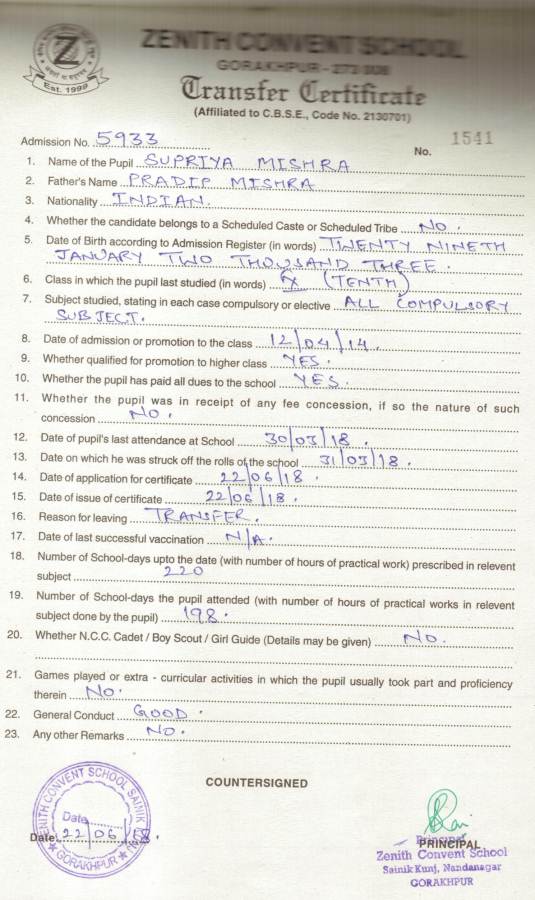 ZENITH CONVENT SCHOOL
GORAKHPUR - 273 008
Transfer Certificate
(Affiliated to C.B.S.E., Code No. 2130701)
Est. 1999
Admission No. 5933
No. 1541
1. Name of the Pupil SUPRIYA MISHRA
2. Father's Name PRADIP MISHRA
3. Nationality INDIAN.
4. Whether the candidate belongs to a Scheduled Caste or Scheduled Tribe NO.
5. Date of Birth according to Admission Register (in words) TWENTY NINETH
JANUARY TWO THOUSAND THREE.
6. Class in which the pupil last studied (in words) X (TENTH)
7. Subject studied, stating in each case compulsory or elective ALL COMPULSORY
SUBJECT.
8. Date of admission or promotion to the class 12/04/14.
9. Whether qualified for promotion to higher class YES.
10. Whether the pupil has paid all dues to the school YES.
11. Whether the pupil was in receipt of any fee concession, if so the nature of such
concession NO.
12. Date of pupil's last attendance at School 30/03/18.
13. Date on which he was struck off the rolls of the school 31/03/18.
14. Date of application for certificate 22/06/18.
15. Date of issue of certificate 22/06/18.
16. Reason for leaving TRANSFER.
17. Date of last successful vaccination N/A.
18. Number of School-days upto the date (with number of hours of practical work) prescribed in relevent
subject 220
19. Number of School-days the pupil attended (with number of hours of practical works in relevent
subject done by the pupil) 198.
20. Whether N.C.C. Cadet / Boy Scout / Girl Guide (Details may be given) NO.
21. Games played or extra - curricular activities in which the pupil usually took part and proficiency
therein NO.
22. General Conduct GOOD.
23. Any other Remarks NO.
COUNTERSIGNED
ZENITH CONVENT SCHOOL SAINIK
GORAKHPUR
Date
Date 22/06/18.
Principal
PRINCIPAL
Zenith Convent School
Sainik Kunj, Nandanagar
GORAKHPUR